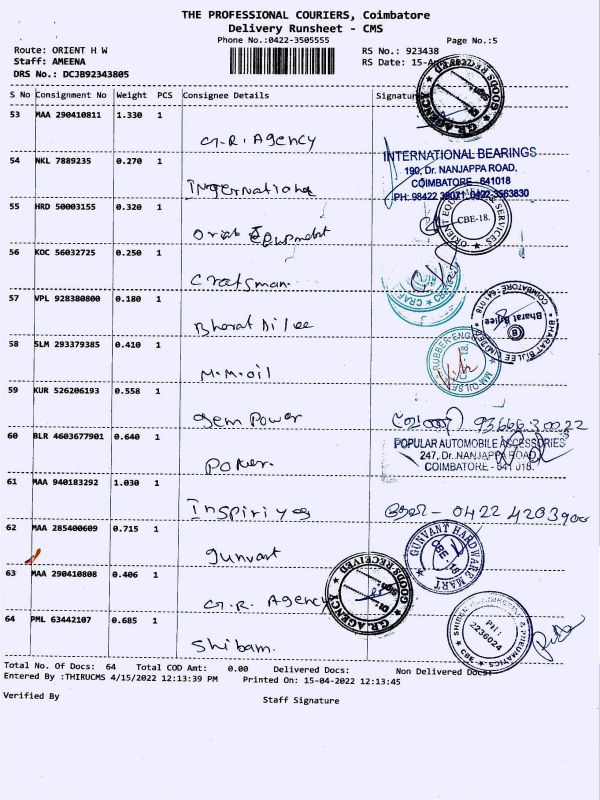 THE PROFESSIONAL COURIERS, Coimbatore
Delivery Runsheet - CMS
Phone No.:0422-3505555
Page No.:5
Route: ORIENT H W
RS No.: 923438
Staff: AMEENA
RS Date: 15-Apr-2022
DRS No.: DCJB92343805
S No Consignment No Weight PCS Consignee Details Signature
53 MAA 290410811 1.330 1
G.R. Agency
GOODS RECEIVED
G.R.AGENCY
54 NKL 7889235 0.270 1
INTERNATIONAL BEARINGS
190, Dr. NANJAPPA ROAD,
COIMBATORE - 641018
International
55 HRD 50003155 0.320 1
CBE-18.
Orient Equipment
56 KOC 56032725 0.250 1
Craftsman
57 VPL 928380800 0.180 1
COIMBATORE-641 018
Bharat Bijlee
BHARAT BIJLEE LIMITED
Bharat Bijlee
58 SLM 293379385 0.410 1
M.M.oil
59 KUR 526206193 0.558 1
Gem Power
60 BLR 4603677901 0.640 1
POPULAR AUTOMOBILE ACCESSORIES
247, Dr. NANJAPPA ROAD,
COIMBATORE - 641 018.
61 MAA 940183292 1.030 1
0422 4203900
62 MAA 285400609 0.715 1
GUNVANT HARDWARE MART
CBE-18
Gunvant
63 MAA 290410808 0.406 1
G.R. Agency
GOODS RECEIVED
G.R.AGENCY
64 PML 63442107 0.685 1
PH:
2236024
Shibam
Total No. Of Docs: 64 Total COD Amt: 0.00 Delivered Docs: Non Delivered Docs:
Entered By :THIRUCMS 4/15/2022 12:13:39 PM Printed On: 15-04-2022 12:13:45
Verified By
Staff Signature